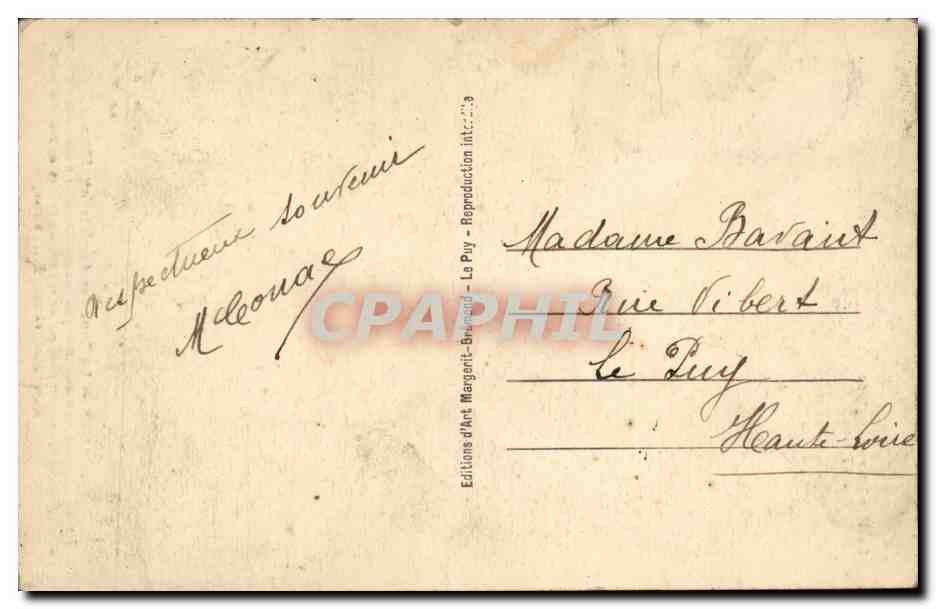 respectueux souvenir
Editions d'Art Margerit-Brémond - Le Puy - Reproduction interdite
Madame Bavant
Rue Vibert
Le Puy
Haute-Loire
CPAPHIL